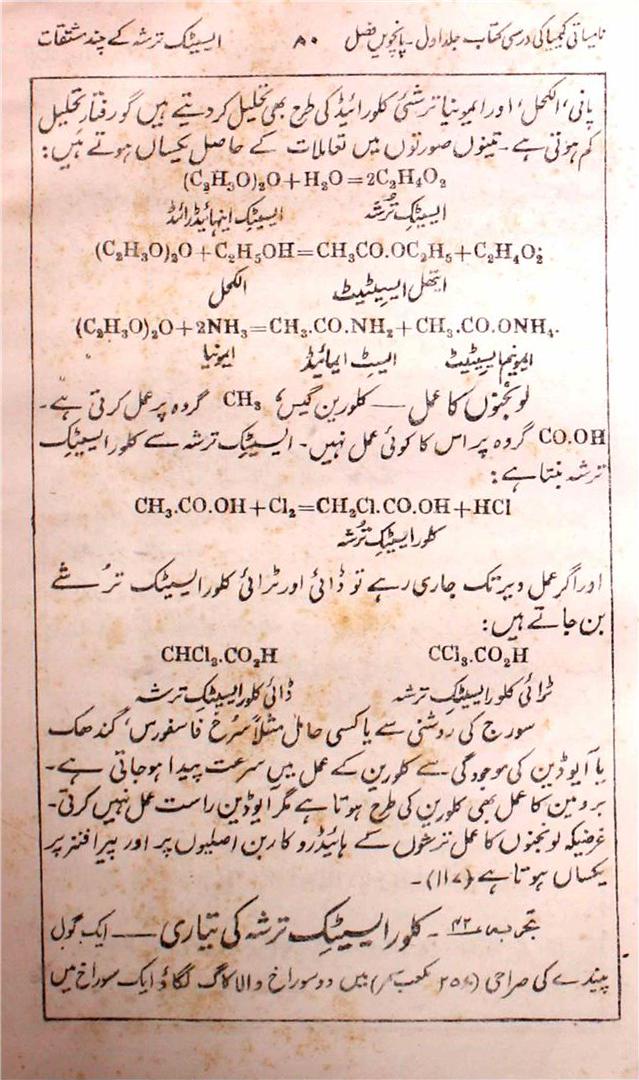 نامیاتی کیمیا کی درسی کتاب جلد اول۔ پانچویں فصل ۸۰ ایسیٹک ترشہ کے چند مشتقات
پانی، الکحل، اور ایمونیا ترشئی کلورائیڈ کی طرح بھی تحلیل کر دیتے ہیں گو رفتار تحلیل
کم ہوتی ہے۔ تینوں صورتوں میں تعاملات کے حاصل یکساں ہوتے ہیں:
(C₂H₃O)₂O+H₂O=2C₂H₄O₂
ایسیٹک ترشہ ایسیٹک اینہائیڈرائڈ
(C₂H₃O)₂O+C₂H₅OH=CH₃CO.OC₂H₅+C₂H₄O₂;
ایتھل ایسیٹیٹ الکحل
(C₂H₃O)₂O+2NH₃=CH₃.CO.NH₂+CH₃.CO.ONH₄.
ایمونیم ایسیٹیٹ ایسٹ ایمائیڈ ایمونیا
لونجنوں کا عمل — کلورین گیس، CH₃ گروہ پر عمل کرتی ہے۔
CO.OH گروہ پر اس کا کوئی عمل نہیں۔ ایسیٹک ترشہ سے کلور ایسیٹک
ترشہ بنتا ہے:
CH₃.CO.OH+Cl₂=CH₂Cl.CO.OH+HCl
کلور ایسیٹک ترشہ
اور اگر عمل دیر تک جاری رہے تو ڈائی اور ٹرائی کلور ایسیٹک ترشے
بن جاتے ہیں:
CHCl₂.CO₂H CCl₃.CO₂H
ٹرائی کلور ایسیٹک ترشہ ڈائی کلور ایسیٹک ترشہ
سورج کی روشنی سے یا کسی حامل مثلاً سرخ فاسفورس، گندھک
یا آیوڈین کی موجودگی سے کلورین کے عمل میں سرعت پیدا ہو جاتی ہے۔
برومین کا عمل بھی کلورین کی طرح ہوتا ہے مگر آیوڈین راست عمل نہیں کرتی۔
غرضیکہ لونجنوں کا عمل ترشوں کے ہائیڈرو کاربن اصلیوں پر اور پیرافنز پر
یکساں ہوتا ہے (۱۱۷)۔
تجربہ ۴۲۔ کلور ایسیٹک ترشہ کی تیاری — ایک گول
پیندے کی صراحی (۲۵۰ مکعب سمر) میں دو سوراخ والا کاگ لگاؤ ایک سوراخ میں